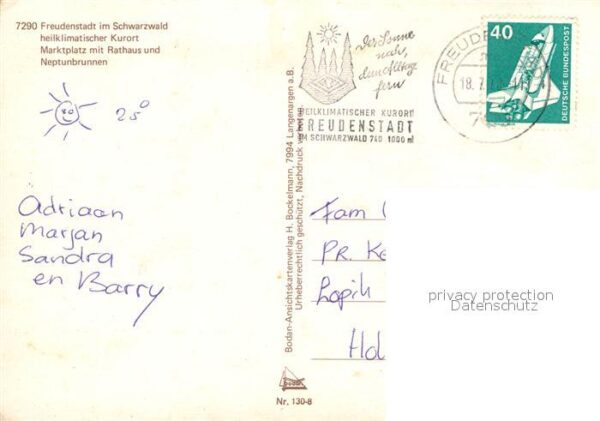 7290 Freudenstadt im Schwarzwald
heilklimatischer Kurort
Marktplatz mit Rathaus und
Neptunbrunnen
25°
Adriaan
Marjan
Sandra
en Barry
Bodan-Ansichtskartenverlag H. Bockelmann, 7994 Langenargen a.B.
Urheberrechtlich geschützt, Nachdruck
Nr. 130-8
Der Sonne
nah,
dem Alltag
fern
HEILKLIMATISCHER KURORT
FREUDENSTADT
IM SCHWARZWALD 740 1000 m
FREUDEN
18.7.
40
DEUTSCHE BUNDESPOST
Fam
Pr. Ke
Lopik
Hol
privacy protection
Datenschutz